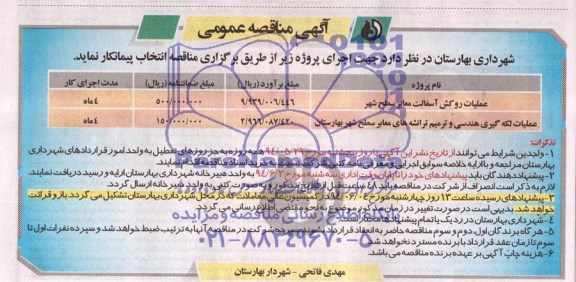 آگهی مناقصه عمومی
شهرداری بهارستان در نظر دارد جهت اجرای پروژه زیر از طریق برگزاری مناقصه انتخاب پیمانکار نماید.
نام پروژه مبلغ برآورد (ریال) مبلغ ضمانتنامه (ریال) مدت اجرای کار
عملیات روکش آسفالت معابر سطح شهر ۹/۹۳۹/۰۰۶/۴۴۶ ۵۰۰/۰۰۰/۰۰۰ ۴ ماه
عملیات لکه گیری هندسی و ترمیم ترانشه های معابر سطح شهر بهارستان ۲/۹۶۶/۰۸۷/۴۲۰ ۱۵۰/۰۰۰/۰۰۰ ۴ ماه
تذکرات:
۱- واجدین شرایط می توانند از تاریخ نشر این آگهی تا روز مورخ همه روزه به جز روزهای تعطیل به واحد امور قراردادهای شهرداری
بهارستان مراجعه و با ارایه خلاصه سوابق اجرایی و معرفی نامه کتبی شرکت نسبت به خرید اسناد مناقصه اقدام نمایند.
۲- پیشنهاددهندگان باید پیشنهادهای خود را تا پایان وقت اداری سه شنبه مورخ ۹۴/۶/۳ به واحد دبیرخانه شهرداری بهارستان ارایه و رسید دریافت نمایند.
لازم به ذکر است انصراف از شرکت در مناقصه باید ۴۸ ساعت قبل از تاریخ مذکور و به صورت کتبی به واحد دبیرخانه ارسال گردد.
۳- پیشنهادهای رسیده ساعت ۱۳ روز چهارشنبه مورخ در کمیسیون عالی معاملات که در محل شهرداری بهارستان تشکیل می گردد، باز و قرائت
خواهد شد. بدیهی است در صورت تغییر در زمان مذکور موضوع به نحو مقتضی اطلاع رسانی می گردد.
۴- شهرداری بهارستان در رد یک یا تمام پیشنهادها مختار است.
۵- هر گاه برندگان اول، دوم و سوم مناقصه حاضر به انعقاد قرارداد نشوند سپرده شرکت در مناقصه آنها به ترتیب ضبط خواهد شد و سپرده نفرات اول تا
سوم تا زمان عقد قرارداد با برنده مسترد نخواهد شد.
۶- هزینه چاپ آگهی بر عهده برنده مناقصه می باشد.
اطلاع رسانی مناقصه و مزایده
۰۲۱-۸۸۳۴۹۶۷۰-۵
مهدی فاتحی - شهردار بهارستان